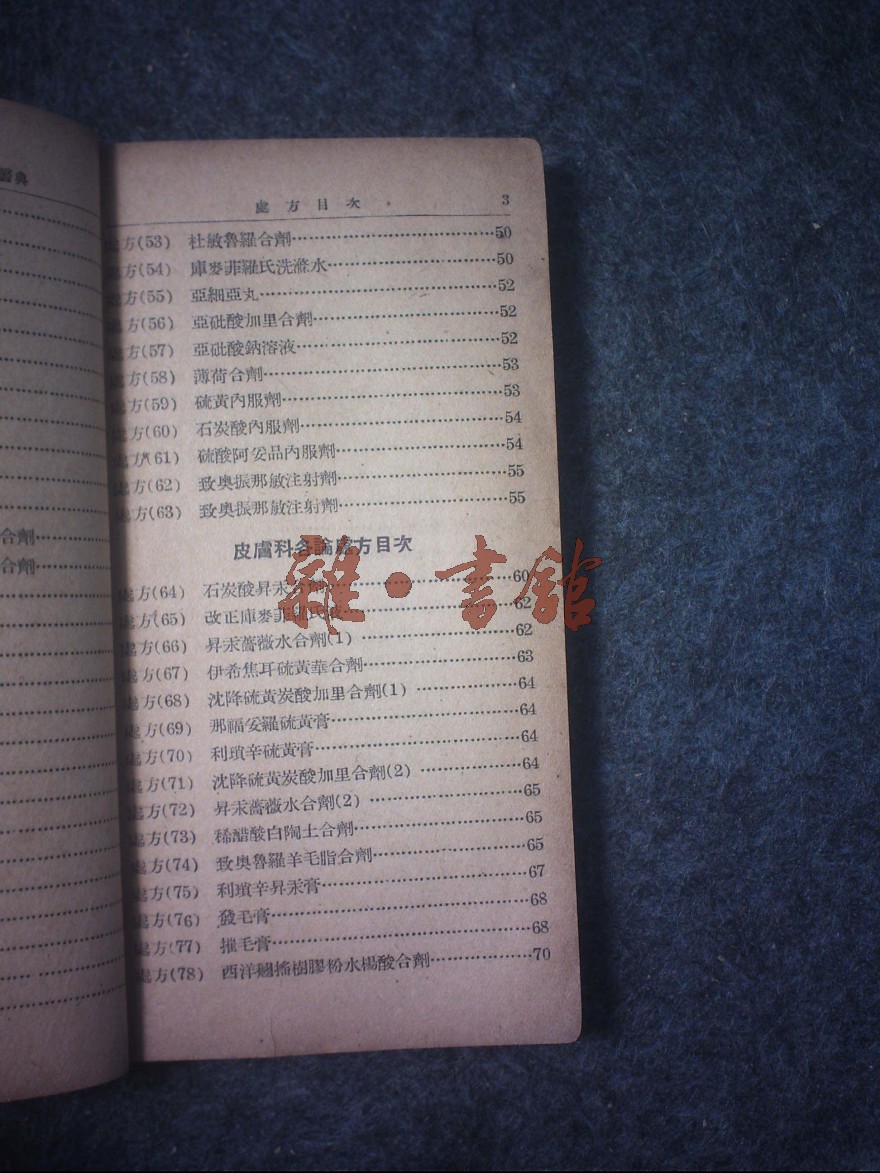 典
合劑
合劑
處方目次 3
處方(53) 杜敏魯羅合劑 50
處方(54) 庫麥菲羅氏洗滌水 50
處方(55) 亞細亞丸 52
處方(56) 亞砒酸加里合劑 52
處方(57) 亞砒酸鈉溶液 52
處方(58) 薄荷合劑 53
處方(59) 硫黃內服劑 53
處方(60) 石炭酸內服劑 54
處方(61) 硫酸阿妥品內服劑 54
處方(62) 致奧振那敏注射劑 55
處方(63) 致奧振那敏注射劑 55
皮膚科各論處方目次
雜·書館
處方(64) 石炭酸昇汞合劑 60
處方(65) 改正庫麥菲羅氏液 62
處方(66) 昇汞薔薇水合劑(1) 62
處方(67) 伊希焦耳硫黃華合劑 63
處方(68) 沈降硫黃炭酸加里合劑(1) 64
處方(69) 那福妥羅硫黃膏 64
處方(70) 利瑣辛硫黃膏 64
處方(71) 沈降硫黃炭酸加里合劑(2) 64
處方(72) 昇汞薔薇水合劑(2) 65
處方(73) 稀醋酸白陶土合劑 65
處方(74) 致奧魯羅羊毛脂合劑 65
處方(75) 利瑣辛昇汞膏 67
處方(76) 發毛膏 68
處方(77) 摧毛膏 68
處方(78) 西洋樹膠粉水楊酸合劑 70